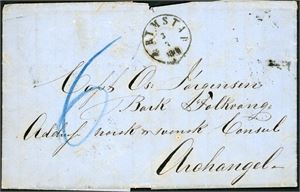 GRIMSTAD
6
Capt O. Jørgensen
Bark Folkvang
Addr norsk & svensk Consul
Archangel